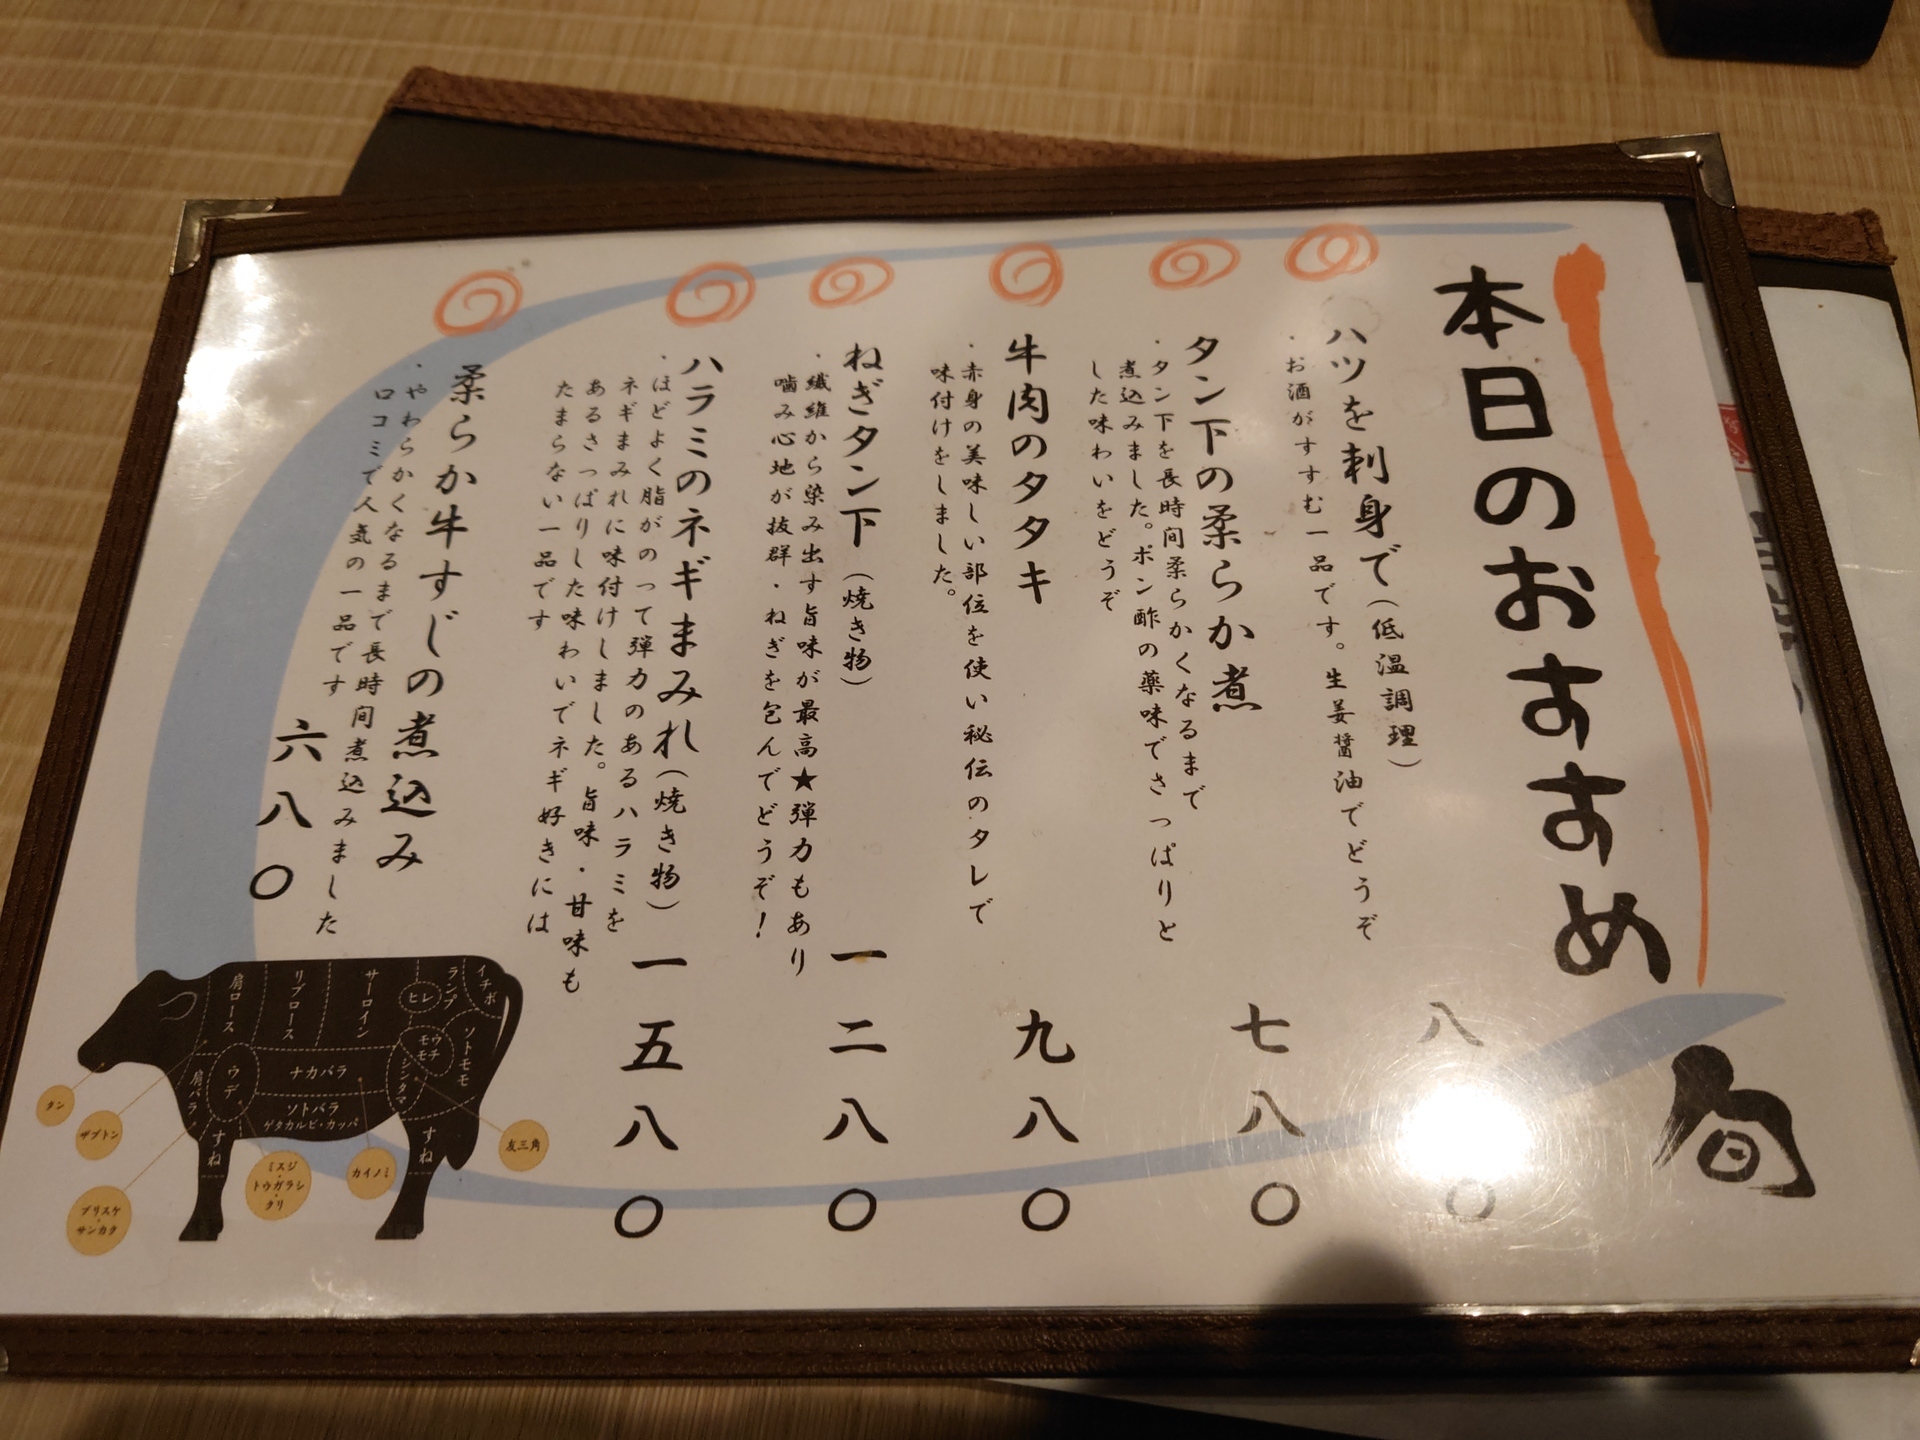 本日のおすすめ
旬
ハツを刺身で(低温調理)
・お酒がすすむ一品です。生姜醤油でどうぞ
タン下の柔らか煮
・タン下を長時間柔らかくなるまで
煮込みました。ポン酢の薬味でさっぱりと
した味わいをどうぞ
七八〇
牛肉のタタキ
・赤身の美味しい部位を使い秘伝のタレで
味付けをしました。
九八〇
ねぎタン下(焼き物)
・繊維から染み出す旨味が最高★弾力もあり
噛み心地が抜群・ねぎを包んでどうぞ!
一二八〇
ハラミのネギまみれ(焼き物)
・ほどよく脂がのって弾力のあるハラミを
ネギまみれに味付けしました。旨味・甘味も
あるさっぱりした味わいでネギ好きには
たまらない一品です
一五八〇
柔らか牛すじの煮込み
・やわらかくなるまで長時間煮込みました
口コミで人気の一品です
六八〇
肩ロース
リブロース
サーロイン
ヒレ
ランプ
イチボ
ソトモモ
ウチモモ
シンタマ
肩バラ
ウデ
ナカバラ
ソトバラ
ゲタカルビ・カッパ
すね
すね
タン
ザブトン
ブリスケ
・
サンカク
ミスジ
・
トウガラシ
・
クリ
カイノミ
友三角